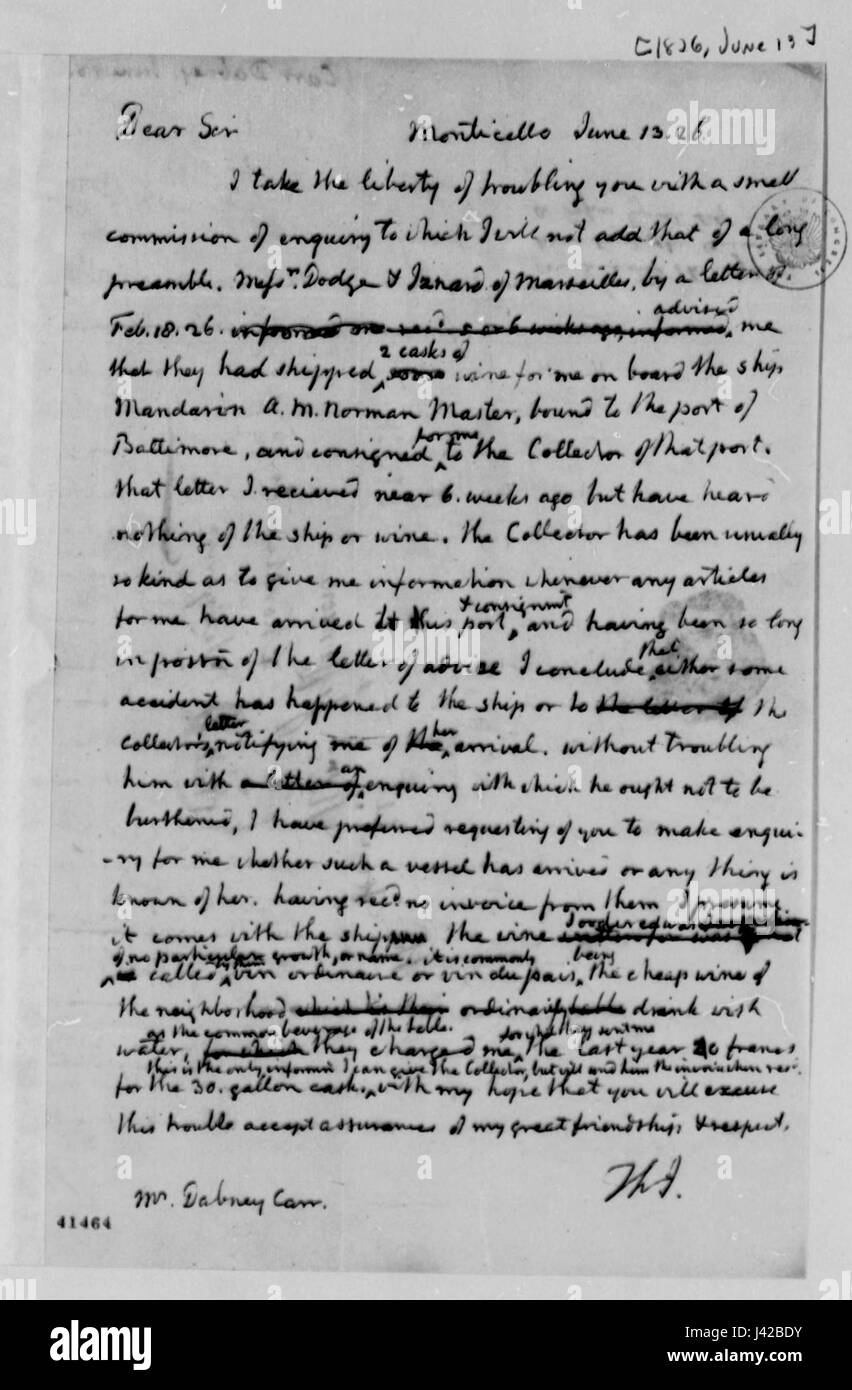 [1826, June 13]
Dear Sir Monticello June 13. 26.
I take the liberty of troubling you with a small
commission of enquiry to which I will not add that of a long
preamble. Messrs. Dodge & Oxnard of Marseilles, by a letter of
Feb. 18. 26. informed advised me
that they had shipped 2 casks of some wine for me on board the ship
Mandarin A. M. Norman Master, bound to the port of
Baltimore, and consigned for me to the Collector of that port.
that letter I recieved near 6. weeks ago but have heard
nothing of the ship or wine. the Collector has been usually
so kind as to give me information whenever any articles
for me have arrived at his port, & consignmt and having been so long
in possn of the letter of advise I conclude that either some
accident has happened to the ship or to the letter of the
Collector's letter notifying me of the her arrival. without troubling
him with a letter of an enquiry with which he ought not to be
burthened, I have preferred requesting of you to make enqui-
-ry for me whether such a vessel has arrived or any thing is
known of her. having recd. no invoice from them I presume
it comes with the ship the wine I ordered was
of no particular growth, or name. it is commonly being
called vin ordinaire or vin du pais, the cheap wine of
the neighborhood which is their ordinary table drink with
as the common beverage of the table. for what they sent me
water, for which they charged me, the last year 20 francs
this is the only informn I can give the Collector, but will send him the invoice when recd.
for the 30. gallon cask, with my hope that you will excuse
this trouble accept assurances of my great friendship & respect.
Th J.
Mr. Dabney Carr.
41464
alamy
alamy
Image ID: J42BDY
www.alamy.com